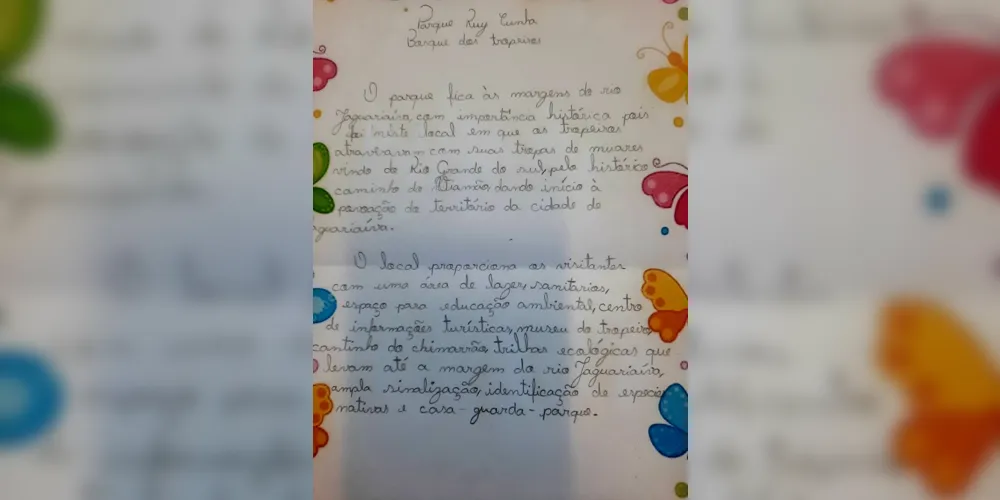 Parque Ruy Cunha
Barque dos tropeiros
O parque fica às margens do rio
Jaguariaíva, com importância histórica pois
foi neste local em que os tropeiros
atravessavam com suas tropas de muares
vindo do Rio Grande do sul, pelo histórico
caminho do Viamão, dando início à
povoação do território da cidade de
aguariaíva.
O local proporciona aos visitantes
com uma área de lazer, sanitários,
espaço para educação ambiental, centro
de informações turísticas, museu do tropeiro
cantinho do chimarrão, trilhas ecológicas que
levam até a margem do rio Jaguariaíva,
ampla sinalização, identificação de especie
nativas e casa-guarda-parque.